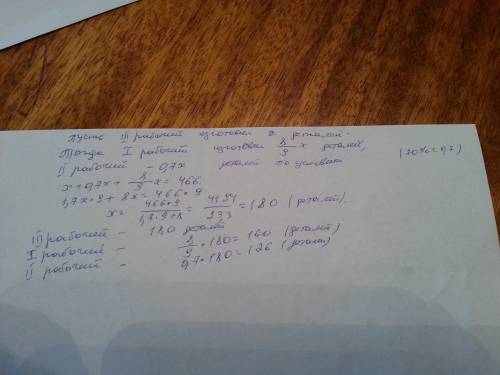 Пусть III рабочий изготовил x деталей.
Тогда I рабочий изготовил 8/9 x деталей,
II рабочий - 0,7x деталей по условию. (70%=0,7)
x+0,7x+8/9x=466.
1,7x·9+8x=466·9
x=466·9/1,7·9+8=4194/233=180 (деталей).
III рабочий - 180 деталей
I рабочий - 8/9·180=160 (деталей)
II рабочий - 0,7·180=126 (деталей)